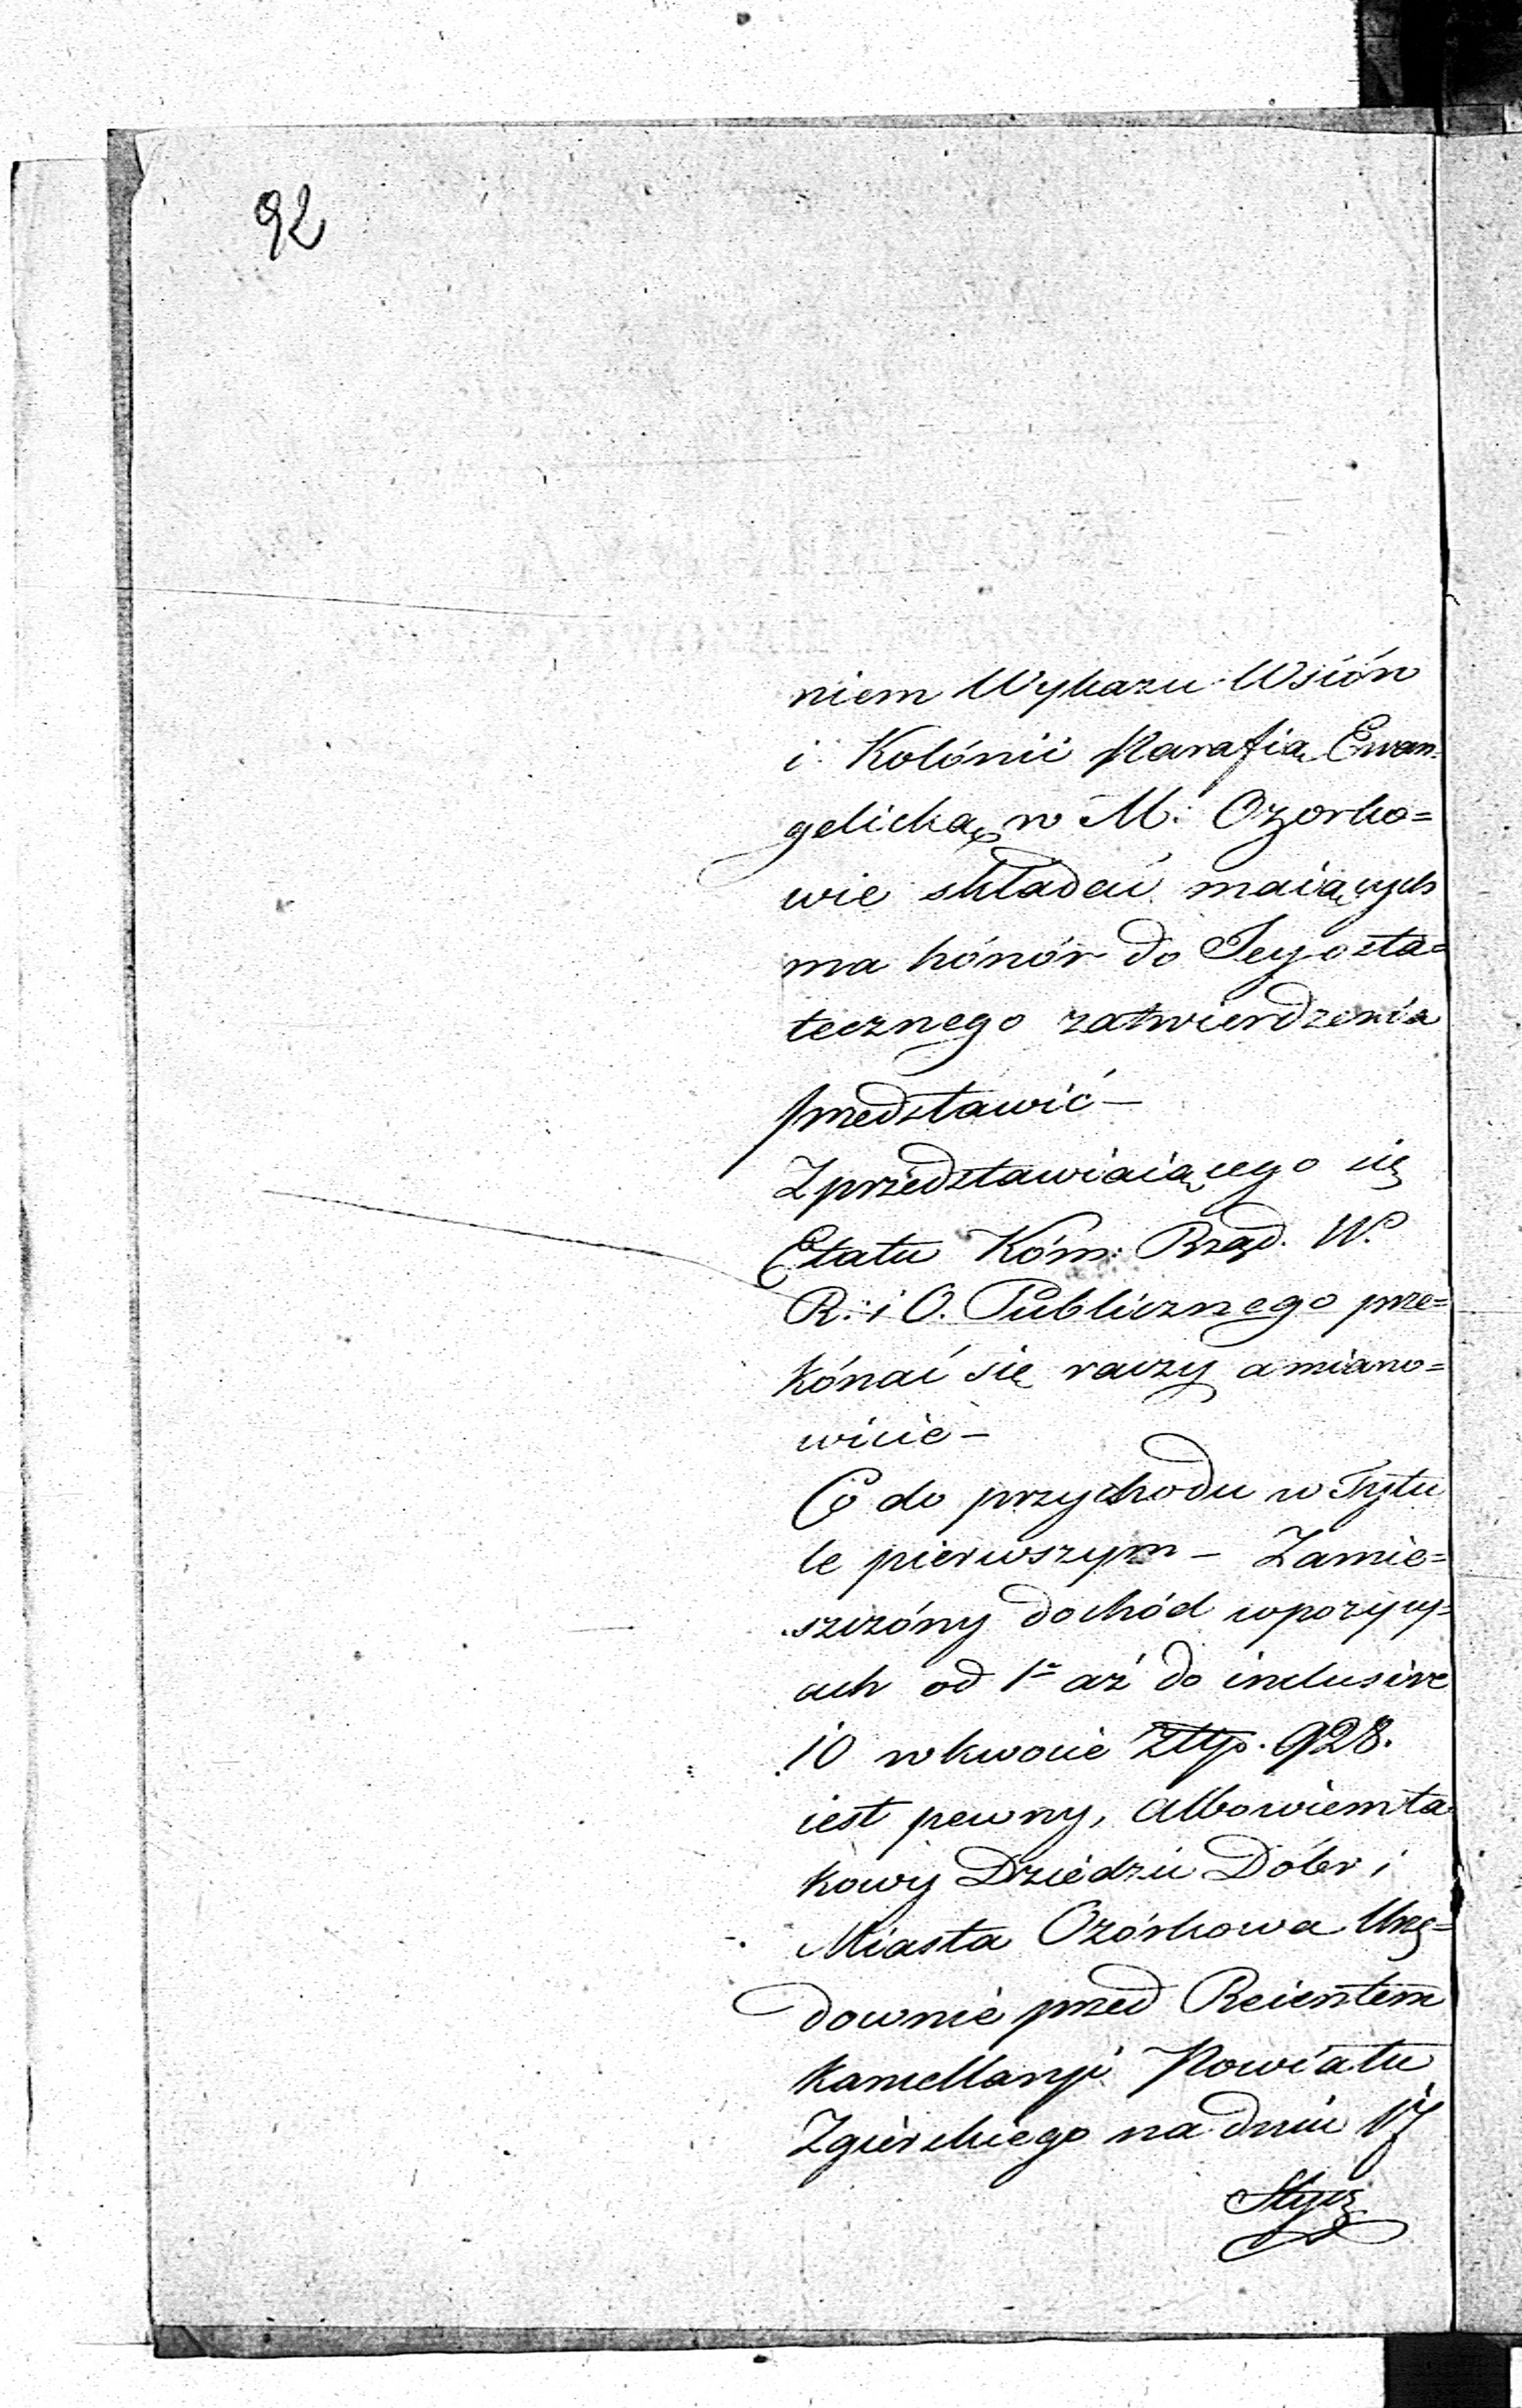 92
niem Wykazu Wsiów
i Kolónii Parafią Ewan=
gelicką w M: Ozorko=
wie składać maiących
ma hónór do Jey osta=
tecznego zatwierdzenia
przedstawić —
Z przedstawiaiącego się
Etatu Kóm: Rząd. W.
R: i O. Publicznego prze=
kónać się raczy a miano=
wicie —
Co do przychodu w Tytu
le pierwszym — Zamie=
szczóny dochód w pozycy=
ach od 1º aż do inclusive
10 w kwocie Złtp. 928.
iest pewny, albowiem ta
kowy Dziedzic Dóbr i
Miasta Ozórkowa Urzę=
downie przed Reientem
Kancellaryi Powiatu
Zgierskiego na dniu 17
Stycz